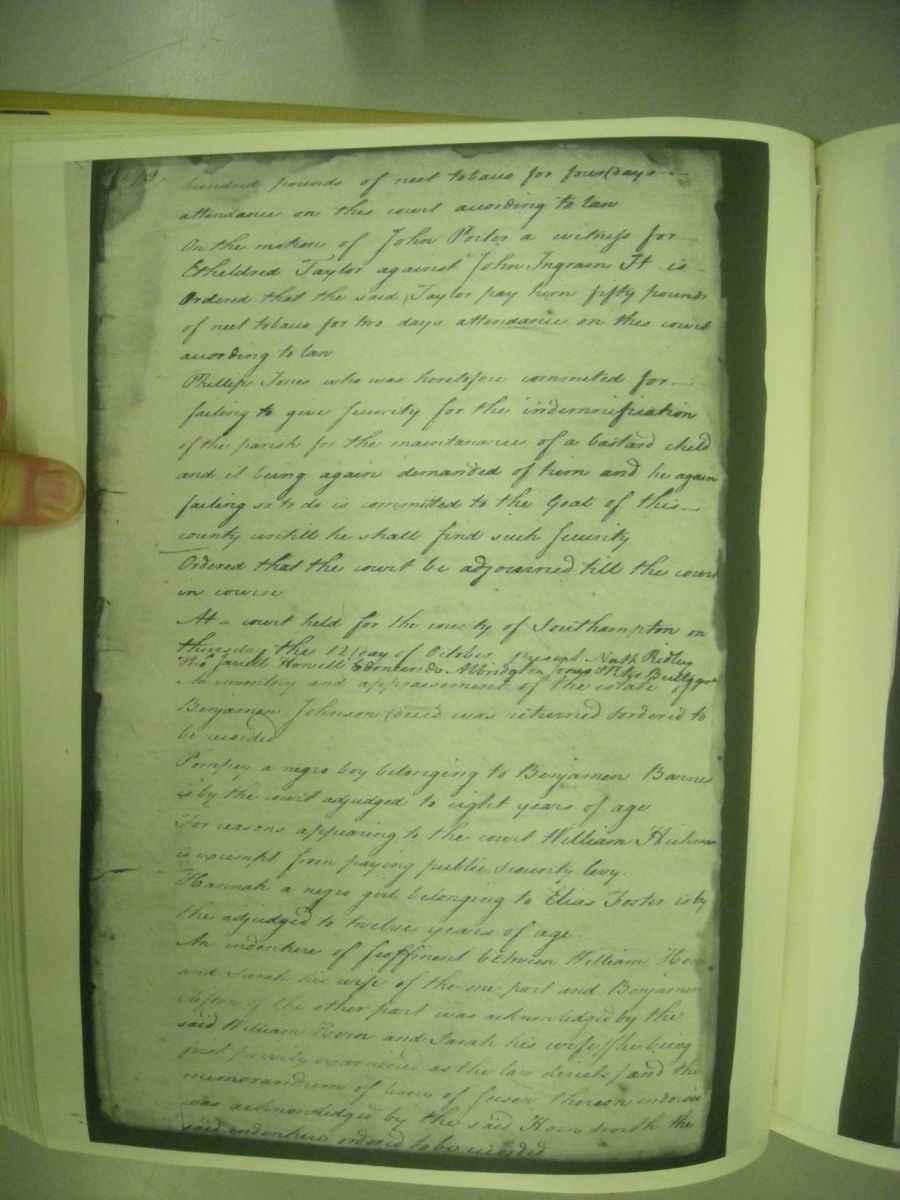 hundred pounds of neet tobaco for four days
attendance on this court according to law
On the motion of John Porter a witness for
Etheldred Taylor against John Ingram It is
Ordered that the said Taylor pay him fifty pounds
of neet tobaco for two days attendance on this court
according to law
Phillip Jones who was heretofore committed for
failing to give security for the indemnification
of the parish for the maintanance of a bastard child
and it being again demanded of him and he again
failing so to do is committed to the Goal of this
county untill he shall find such security
Ordered that the court be adjourned till the court
in course
At a court held for the county of Southampton on
thursday the 12 day of October present Nath Ridley
Howell Edmunds Albridgton Jones
An inventory and appraisement of the estate of
Benjamen Johnson decd was returned & ordered to
be recorded
Pompey a negro boy belonging to Benjamen Barnes
is by the court adjudged to eight years of age
For reasons appearing to the court William Hickman
is exempt from paying public & county levy.
Hannah a negro girl belonging to Elias Foster is by
the adjudged to twelve years of age.
An indenture of feoffment between William Horn
and Sarah his wife of the one part and Benjamen
Clifton of the other part was acknowledged by the
said William Horn and Sarah his wife (she being
first privily examined as the law directs) and the
memorandum of livery of seisen thereon endorsed
was acknowledged by the said Horn which the
said indenture ordered to be recorded